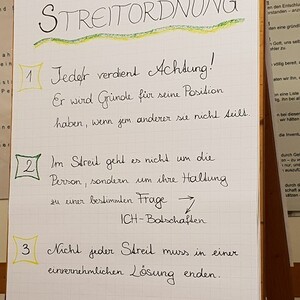 STREITORDNUNG
1 Jede/r verdient Achtung!
Er wird Gründe für seine Position
haben, wenn jem anderer sie nicht teilt.
2 Im Streit geht es nicht um die
Person, sondern um ihre Haltung
zu einer bestimmten Frage
→ ICH-Botschaften
3 Nicht jeder Streit muss in einer
einvernehmlichen Lösung enden.